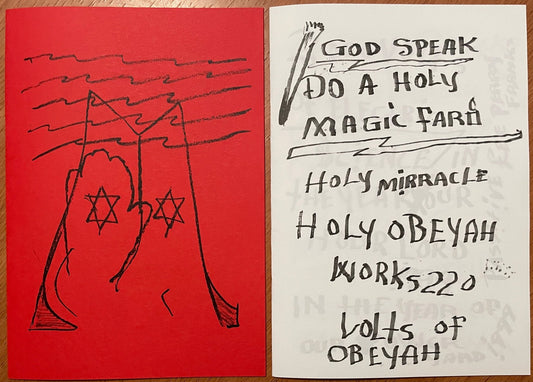 GOD SPEAK
DO A HOLY
MAGIC FARO
HOLY MIRRACLE
HOLY OBEYAH
WORKS 220
VOLTS OF
OBEYAH